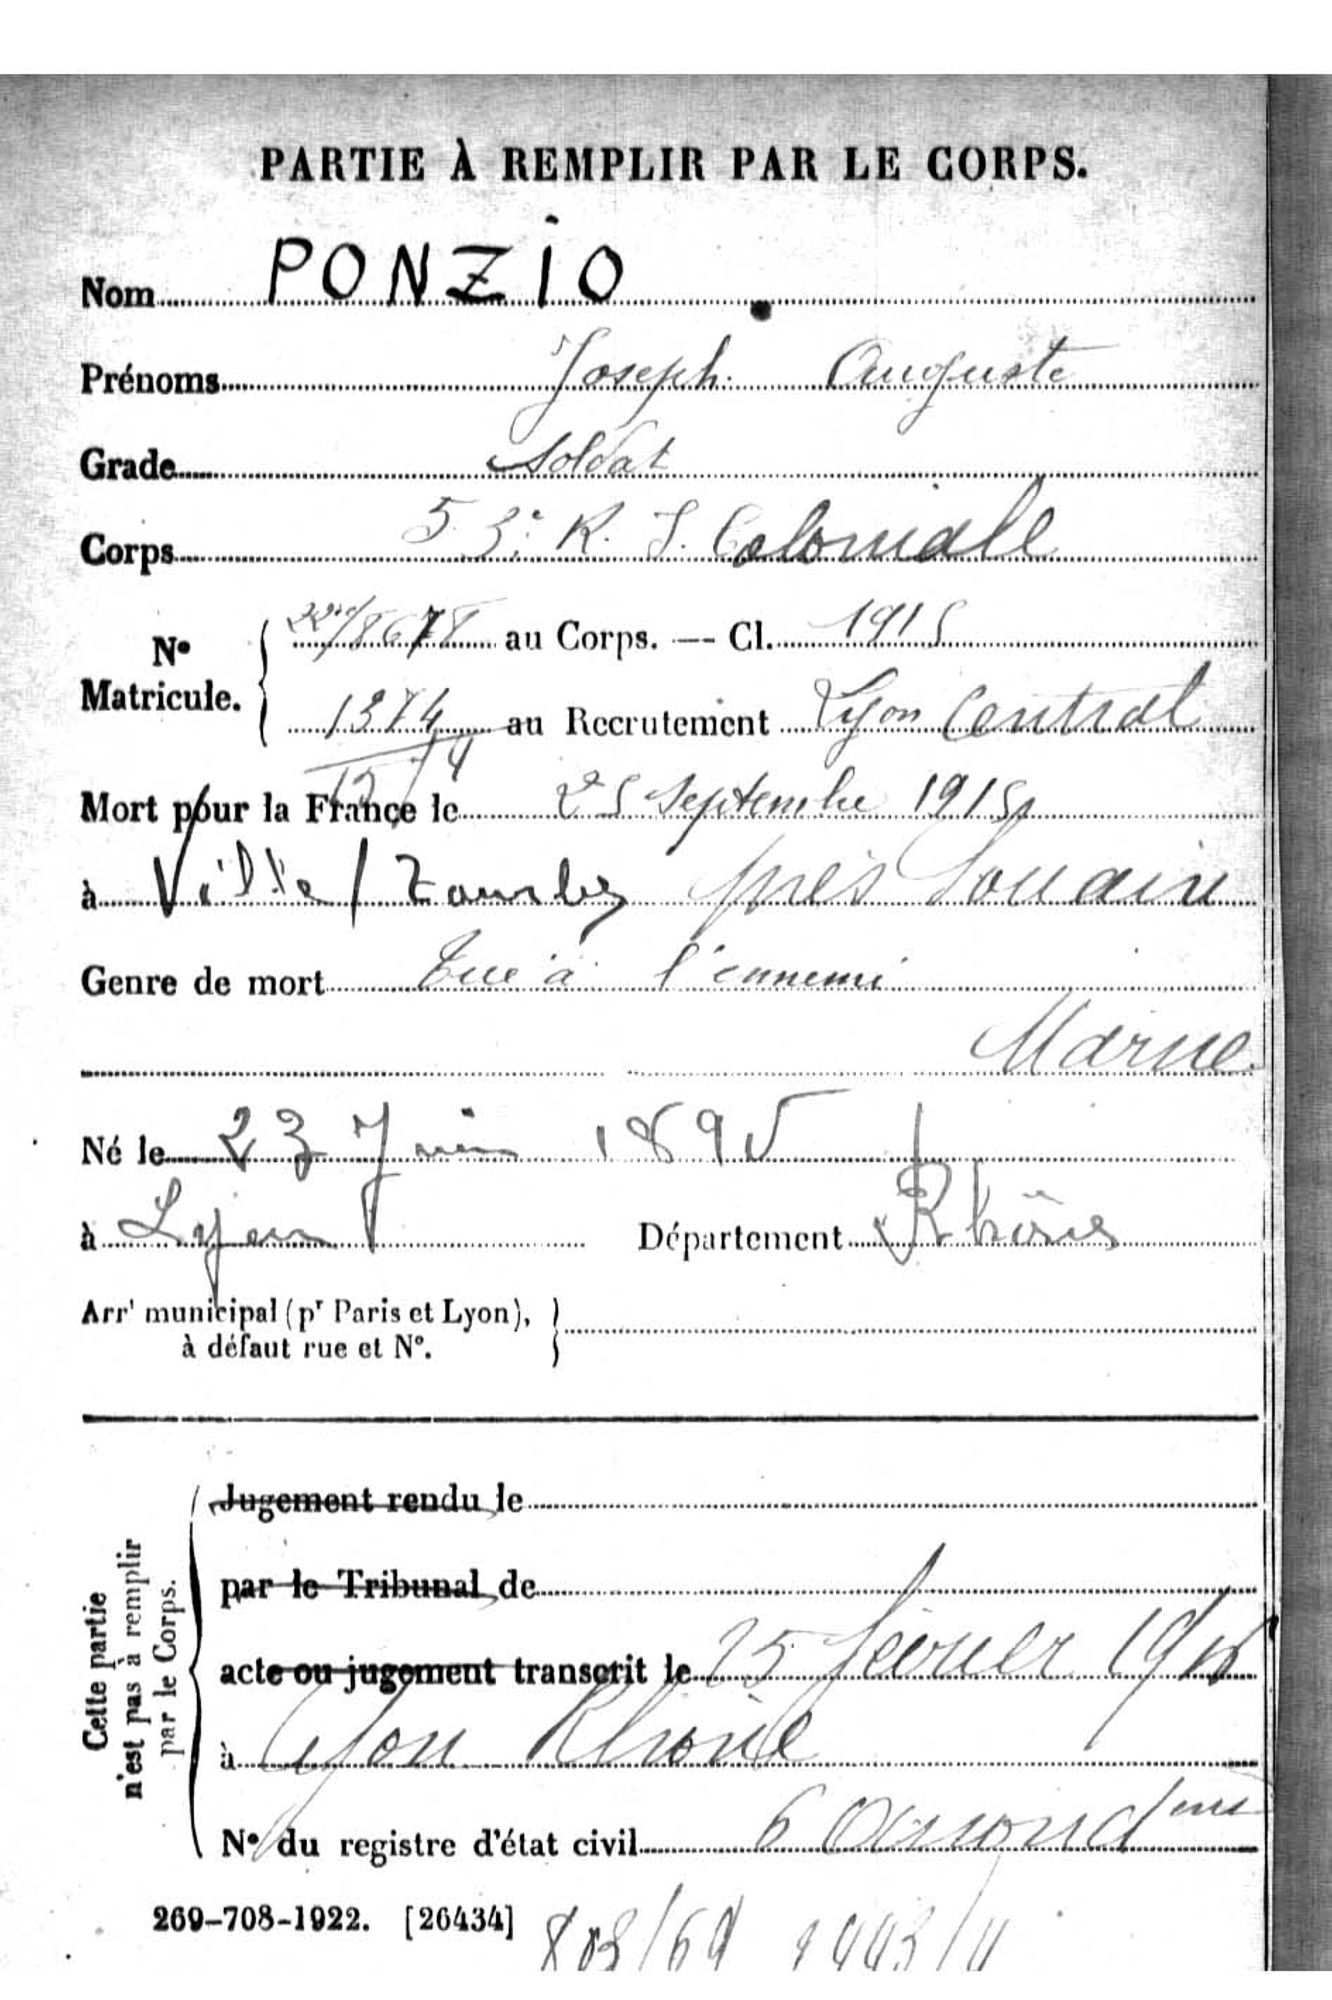 PARTIE À REMPLIR PAR LE CORPS.
Nom PONZIO
Prénoms Joseph Auguste
Grade Soldat
Corps 53e R. I. Coloniale
No Matricule. au Corps. — Cl. 1915
1374 au Recrutement Lyon Central
1574
Mort pour la France le 25 Septembre 1915
à Ville s/ Tourbe près Souain
Genre de mort Tué à l'ennemi
Marne
Né le 23 Juin 1895
à Lyon Département Rhône
Arrt municipal (pr Paris et Lyon),
à défaut rue et No.
Cette partie
n'est pas à remplir
par le Corps.
Jugement rendu le
par le Tribunal de
acte ou jugement transcrit le 25 février
à Lyon Rhône
No du registre d'état civil 6 Arrondmt
269-708-1922. [26434]